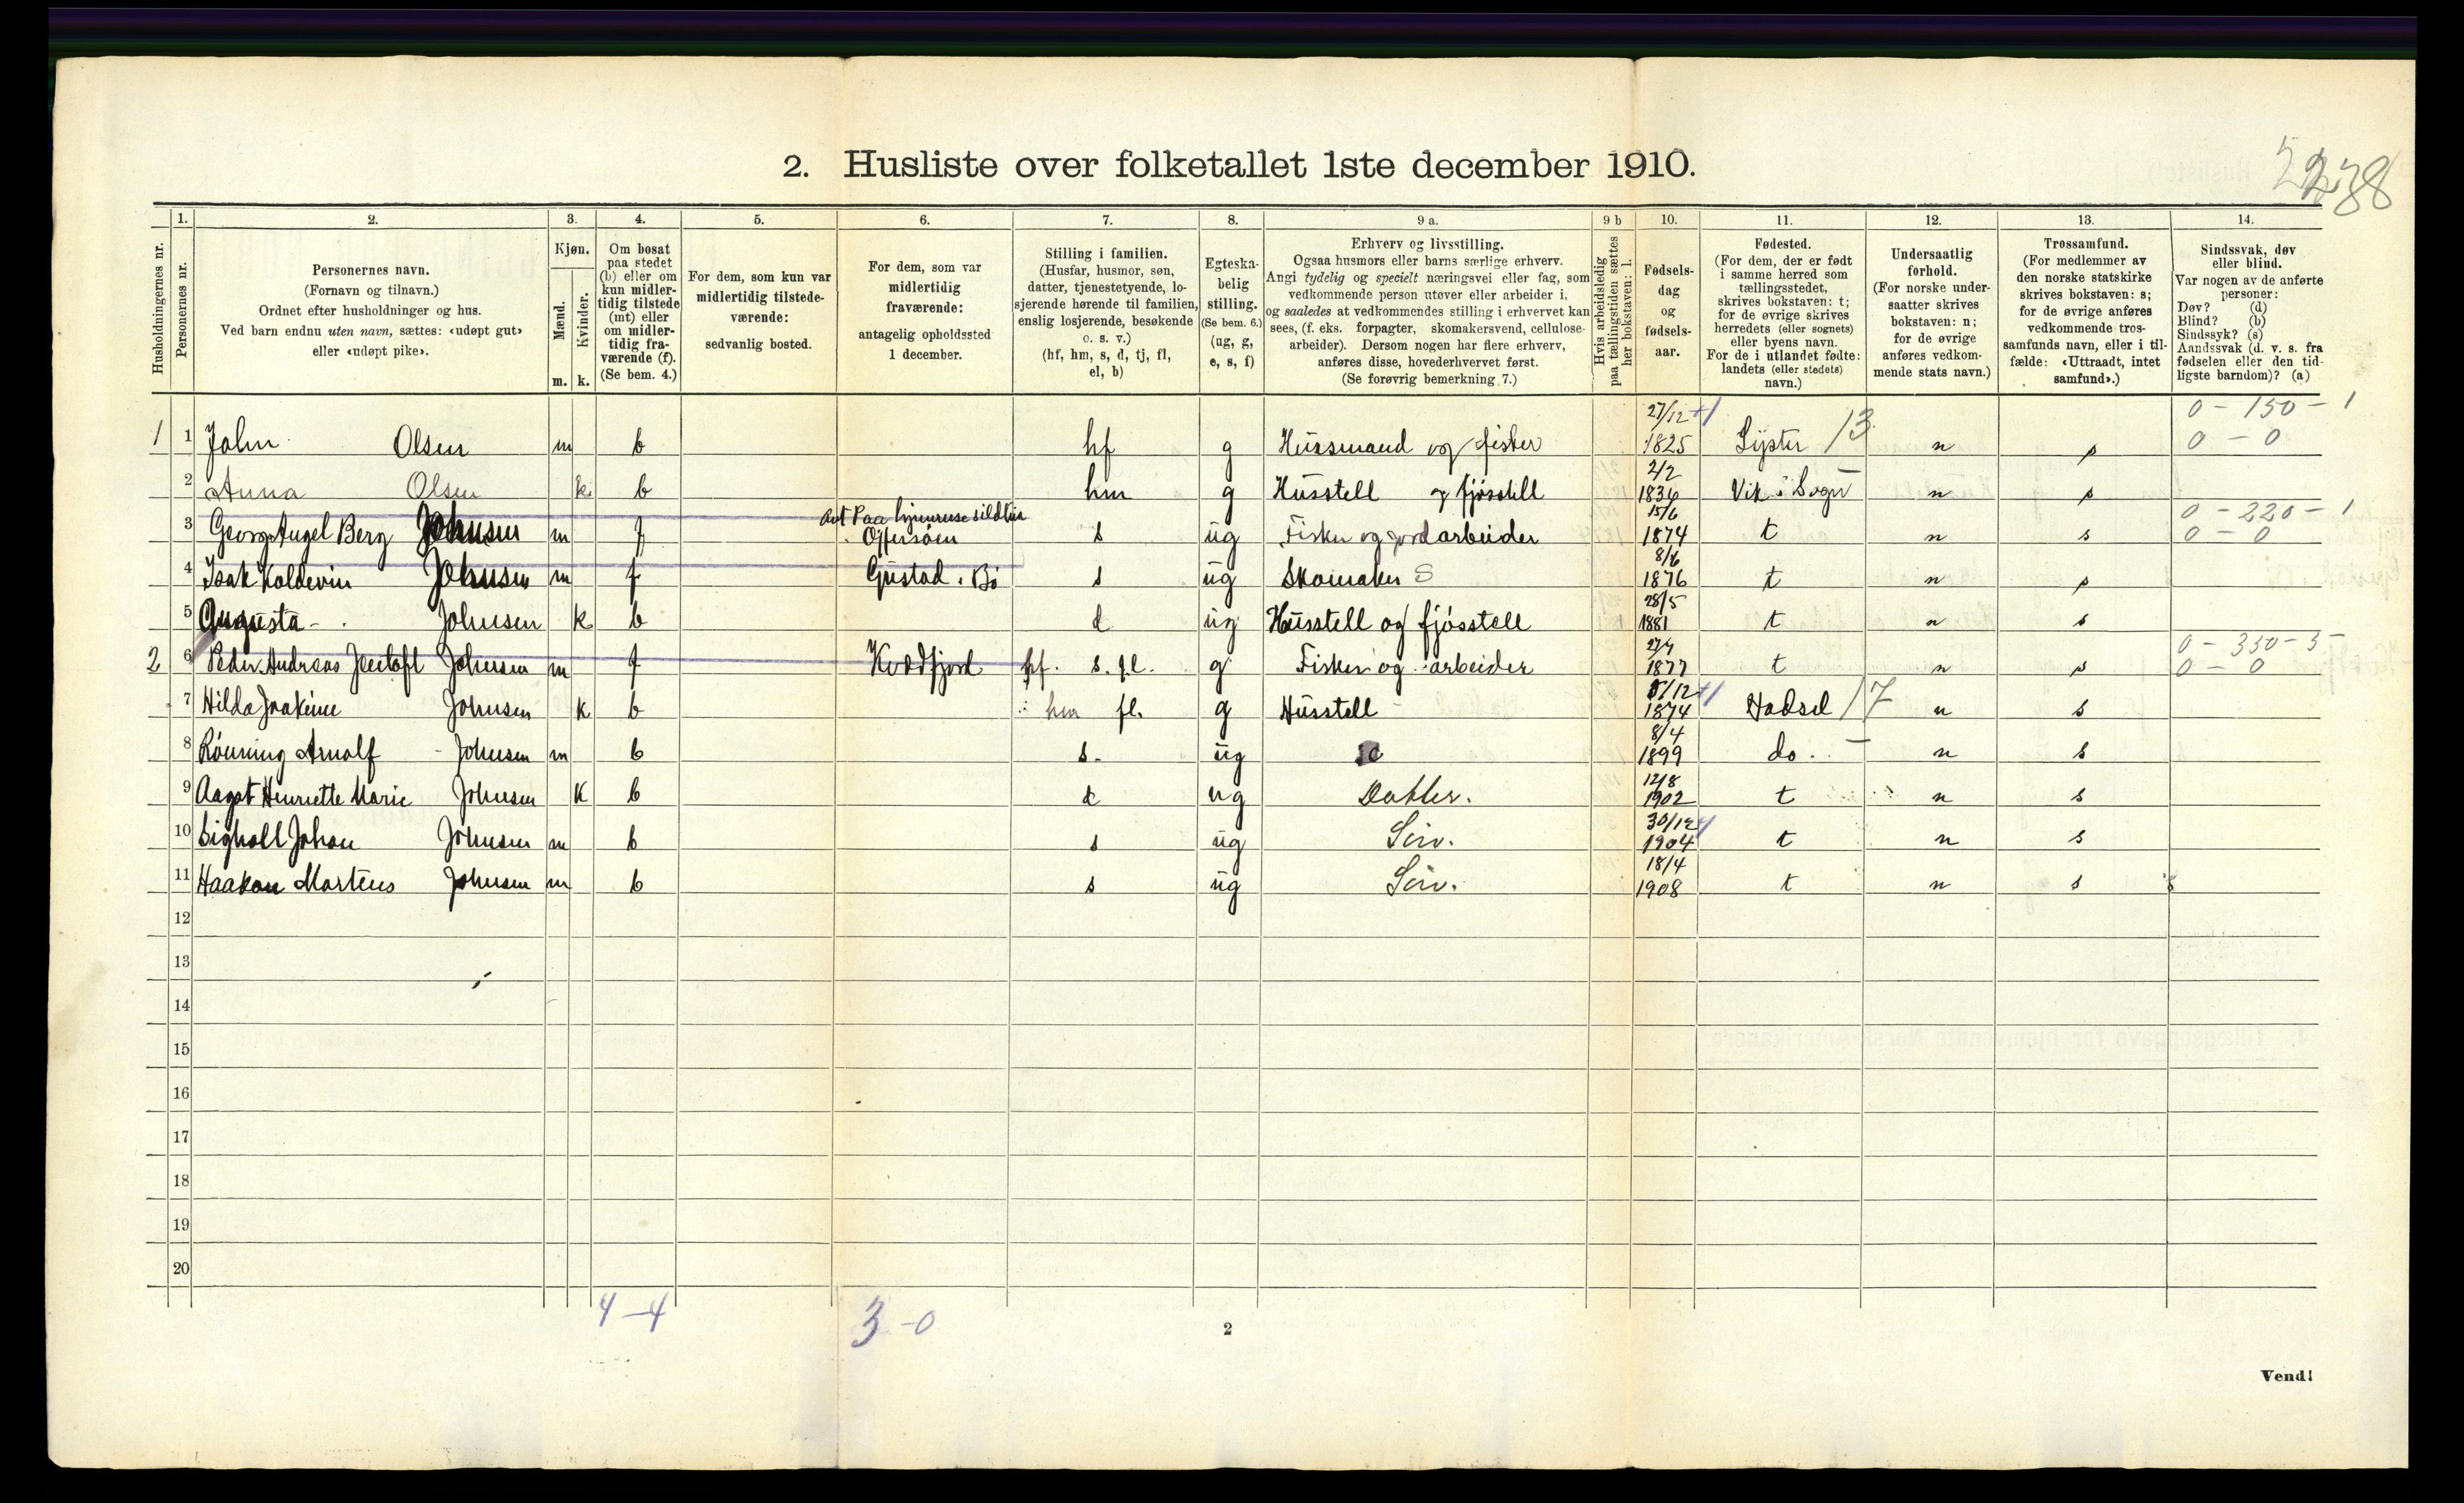 2. Husliste over folketallet 1ste december 1910.
Husholdningernes nr.
1. Personernes nr.
2. Personernes navn. (Fornavn og tilnavn.) Ordnet efter husholdninger og hus. Ved barn endnu uten navn, sættes: «udøpt gut» eller «udøpt pike».
3. Kjøn. Mænd. m. Kvinder. k.
4. Om bosat paa stedet (b) eller om kun midlertidig tilstede (mt) eller om midlertidig fraværende (f). (Se bem. 4.)
5. For dem, som kun var midlertidig tilstedeværende: sedvanlig bosted.
6. For dem, som var midlertidig fraværende: antagelig opholdssted 1 december.
7. Stilling i familien. (Husfar, husmor, søn, datter, tjenestetyende, losjerende hørende til familien, enslig losjerende, besøkende o. s. v.) (hf, hm, s, d, tj, fl, el, b)
8. Egteskabelig stilling. (Se bem. 6.) (ug, g, e, s, f)
9 a. Erhverv og livsstilling. Ogsaa husmors eller barns særlige erhverv. Angi tydelig og specielt næringsvei eller fag, som vedkommende person utøver eller arbeider i, og saaledes at vedkommendes stilling i erhvervet kan sees, (f. eks. forpagter, skomakersvend, cellulosearbeider). Dersom nogen har flere erhverv, anføres disse, hovederhvervet først. (Se forøvrig bemerkning 7.)
9 b Hvis arbeidsledig paa tællingstiden sættes her bokstaven: l.
10. Fødselsdag og fødselsaar.
11. Fødested. (For dem, der er født i samme herred som tællingsstedet, skrives bokstaven: t; for de øvrige skrives herredets (eller sognets) eller byens navn. For de i utlandet fødte: landets (eller stedets) navn.)
12. Undersaatlig forhold. (For norske undersaatter skrives bokstaven: n; for de øvrige anføres vedkommende stats navn.)
13. Trossamfund. (For medlemmer av den norske statskirke skrives bokstaven: s; for de øvrige anføres vedkommende trossamfunds navn, eller i tilfælde: «Uttraadt, intet samfund».)
14. Sindssvak, døv eller blind. Var nogen av de anførte personer: Døv? (d) Blind? (b) Sindssyk? (s) Aandssvak (d. v. s. fra fødselen eller den tidligste barndom)? (a)
1 1 John Olsen m b hf g Husmand og fisker 27/12 1825 Lyster 13 n s 0 - 150 - 1 0 - 0
2 Anna Olsen k b hm g Husstell og fjøsstell 2/2 1836 Vik i Sogn n s
3 Georg Angel Berg Johnsen m f Offersøen s ug Fisker og jordarbeider 15/6 1874 t n s 0 - 220 - 1 0 - 0
4 Isak Koldevin Johnsen m f Gustad i Bø s ug Skomaker S 8/6 1876 t n s
5 Augusta Johnsen k b d ug Husstell og fjøsstell 28/5 1881 t n s
2 6 Peder Andreas Johnsen m f Kvædfjord hf. s. fl. g Fisker og arbeider 1877 t n s 0 - 350 - 5 0 - 0
7 Hilda Joakime Johnsen k b hm fl. g Husstell 5/12 1874 Hadsel 17 n s
8 Rønning Arnolf Johnsen m b s. ug 8/4 1899 do. n s
9 Aagot Henriette Marie Johnsen k b d ug Datter. 12/8 1902 t n s
10 Sigvall Johan Johnsen m b s ug Søn. 30/12 1904 t n s
11 Haakon Marteus Johnsen m b s ug Søn. 18/4 1908 t n s
12
13
14
15
16
17
18
19
20
4-4
3-0
2
Vend!